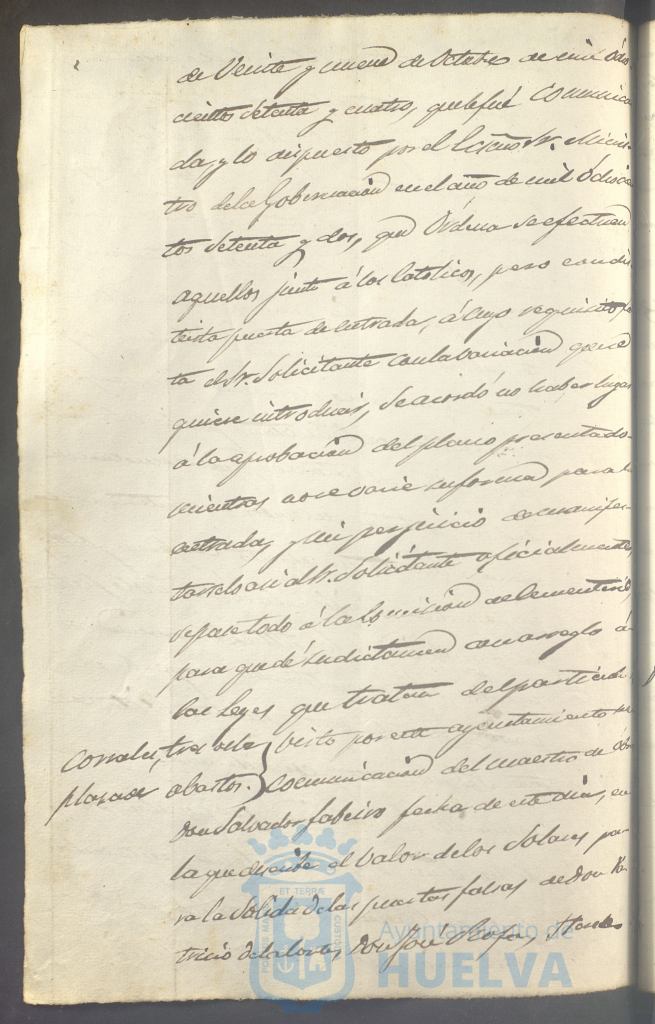 de Veinte y nueve de Octubre de mil ocho-
cientos setenta y cuatro, que le fué comunica
da, y lo dispuesto por el Excmo Sr. Minis-
tro de la Gobernacion en el año de mil ochocien
tos setenta y dos, que Ordena se efectuen
aquellos junto á los Catolicos, pero con dis
tinta puerta de entrada, á cuyo requisito fal
ta el Sr. Solicitante con la variacion que se
quiere introducir, se acordó no haber lugar
á la aprobacion del plano presentado
mientras no se varie su forma para la
entrada, y sin perjuicio de manifes-
tarselo asi al Sr. Solicitante oficialmente,
se pase todo á la Comision de Cementerio,
para que dé su dictamen con arreglo á
las Leyes que tratan del particular.
Corrales, tras de la } Visto por este ayuntamiento la
plaza de abastos. } comunicacion del maestro de obras
Don Salvador fecha de este dia, en
la que el valor de los Solares pa
ra la Salida de las puertas falsas de Don Pa
tricio de la Corte, Don José Rofa,
ET TERRÆ
Ayuntamiento de
HUELVA